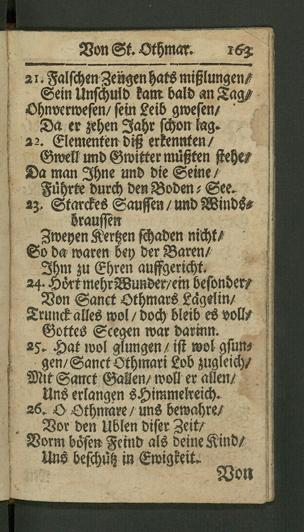 Von St. Othmar. 163
21. Falschen Zeugen hats mißlungen/
Sein Unschuld kam bald an Tag/
Ohnverwesen/ sein Leib gwesen/
Da er zehen Jahr schon lag.
22. Elementen diß erkennten/
Gwell und Gwitter müßten stehe/
Da man Ihne und die Seine/
Führte durch den Boden-See.
23. Starckes Saussen/ und Winds-
braussen
Zweyen Kertzen schaden nicht/
So da waren bey der Baren/
Ihm zu Ehren auffgericht.
24. Hört mehr Wunder/ ein besonder/
Von Sanct Othmars Lägelin/
Trunck alles wol/ doch bleib es voll/
Gottes Seegen war darinn.
25. Hat wol glungen/ ist wol gsun-
gen/ Sanct Othmari Lob zugleich/
Mit Sanct Gallen/ woll er allen/
Uns erlangen s Himmelreich.
26. O Othmare/ uns bewahre/
Vor den Ublen diser Zeit/
Vorm bösen Feind als deine Kind/
Uns beschütz in Ewigkeit.
Von